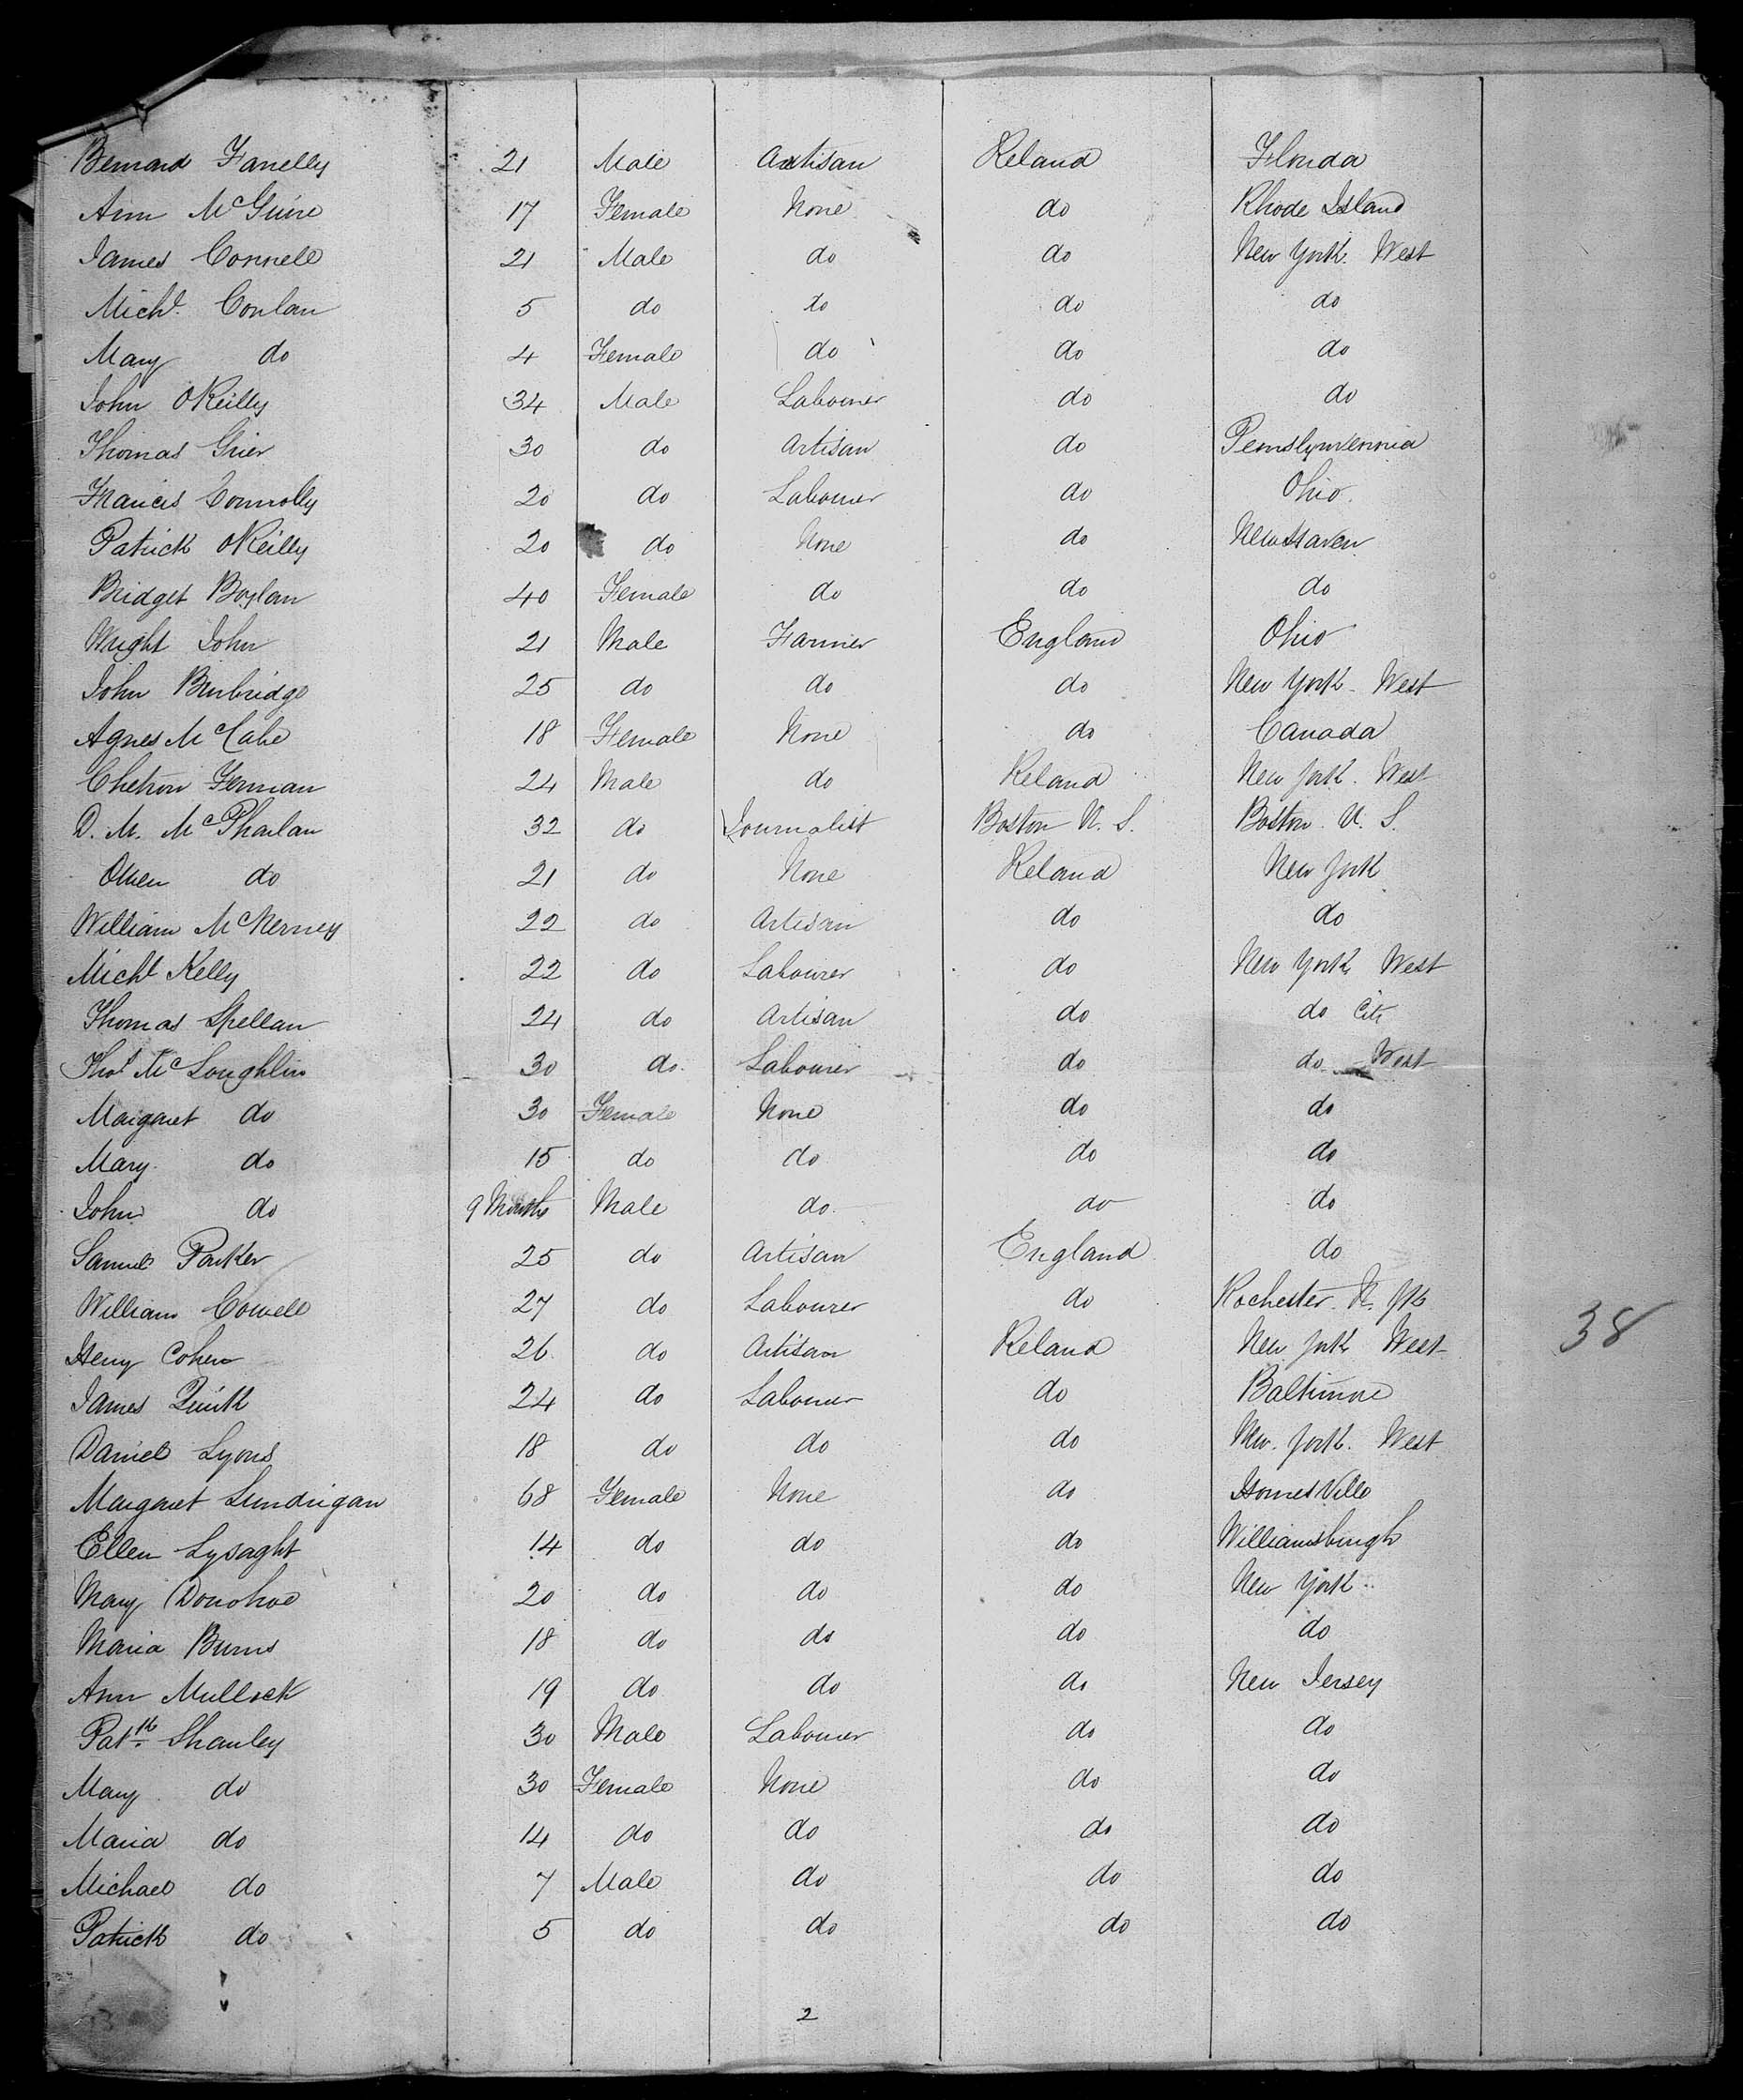 Bernard Farrelly 21 Male Artisan Ireland Florida
Ann McGuire 17 Female None do Rhode Island
James Connell 21 Male do do New York West
Michl. Conlan 5 do do do do
Mary do 4 Female do do do
John OReilly 34 Male Labourer do do
Thomas Grier 30 do Artisan do Pennslyvennia
Francis Connolly 20 do Labourer do Ohio
Patrick OReilly 20 do None do New Haven
Bridget Boylan 40 Female do do do
Wright John 21 Male Farmer England Ohio
John Burbridge 25 do do do New York West
Agnes McCabe 18 Female None do Canada
24 Male do Ireland New York West
D. M. McPhailan 32 do Journalist Boston U. S. Boston U. S.
Owen do 21 do None Ireland New York
William McNerney 22 do Artisan do do
Michl Kelly 22 do Labourer do New York West
Thomas Spellan 24 do Artisan do do City
Thos McLoughlin 30 do Labourer do do West
Margaret do 30 Female None do do
Mary do 15 do do do do
John do 9 Months Male do do do
Samuel Parker 25 do Artisan England do
William Cowell 27 do Labourer do Rochester N. Yk
Henry Cohen 26 do Artisan Ireland New York West 38
James Quirk 24 do Labourer do Baltimore
Daniel Lyons 18 do do do New York West
Margaret Lundrigan 68 Female None do HornesVille
Ellen Lysaght 14 do do do Williamsburgh
Mary Donohoe 20 do do do New York
Maria Burns 18 do do do do
Ann Mullock 19 do do do New Jersey
Patk. Shanley 30 Male Labourer do do
Mary do 30 Female None do do
Maria do 14 do do do do
Michael do 7 Male do do do
Patrick do 5 do do do do
2